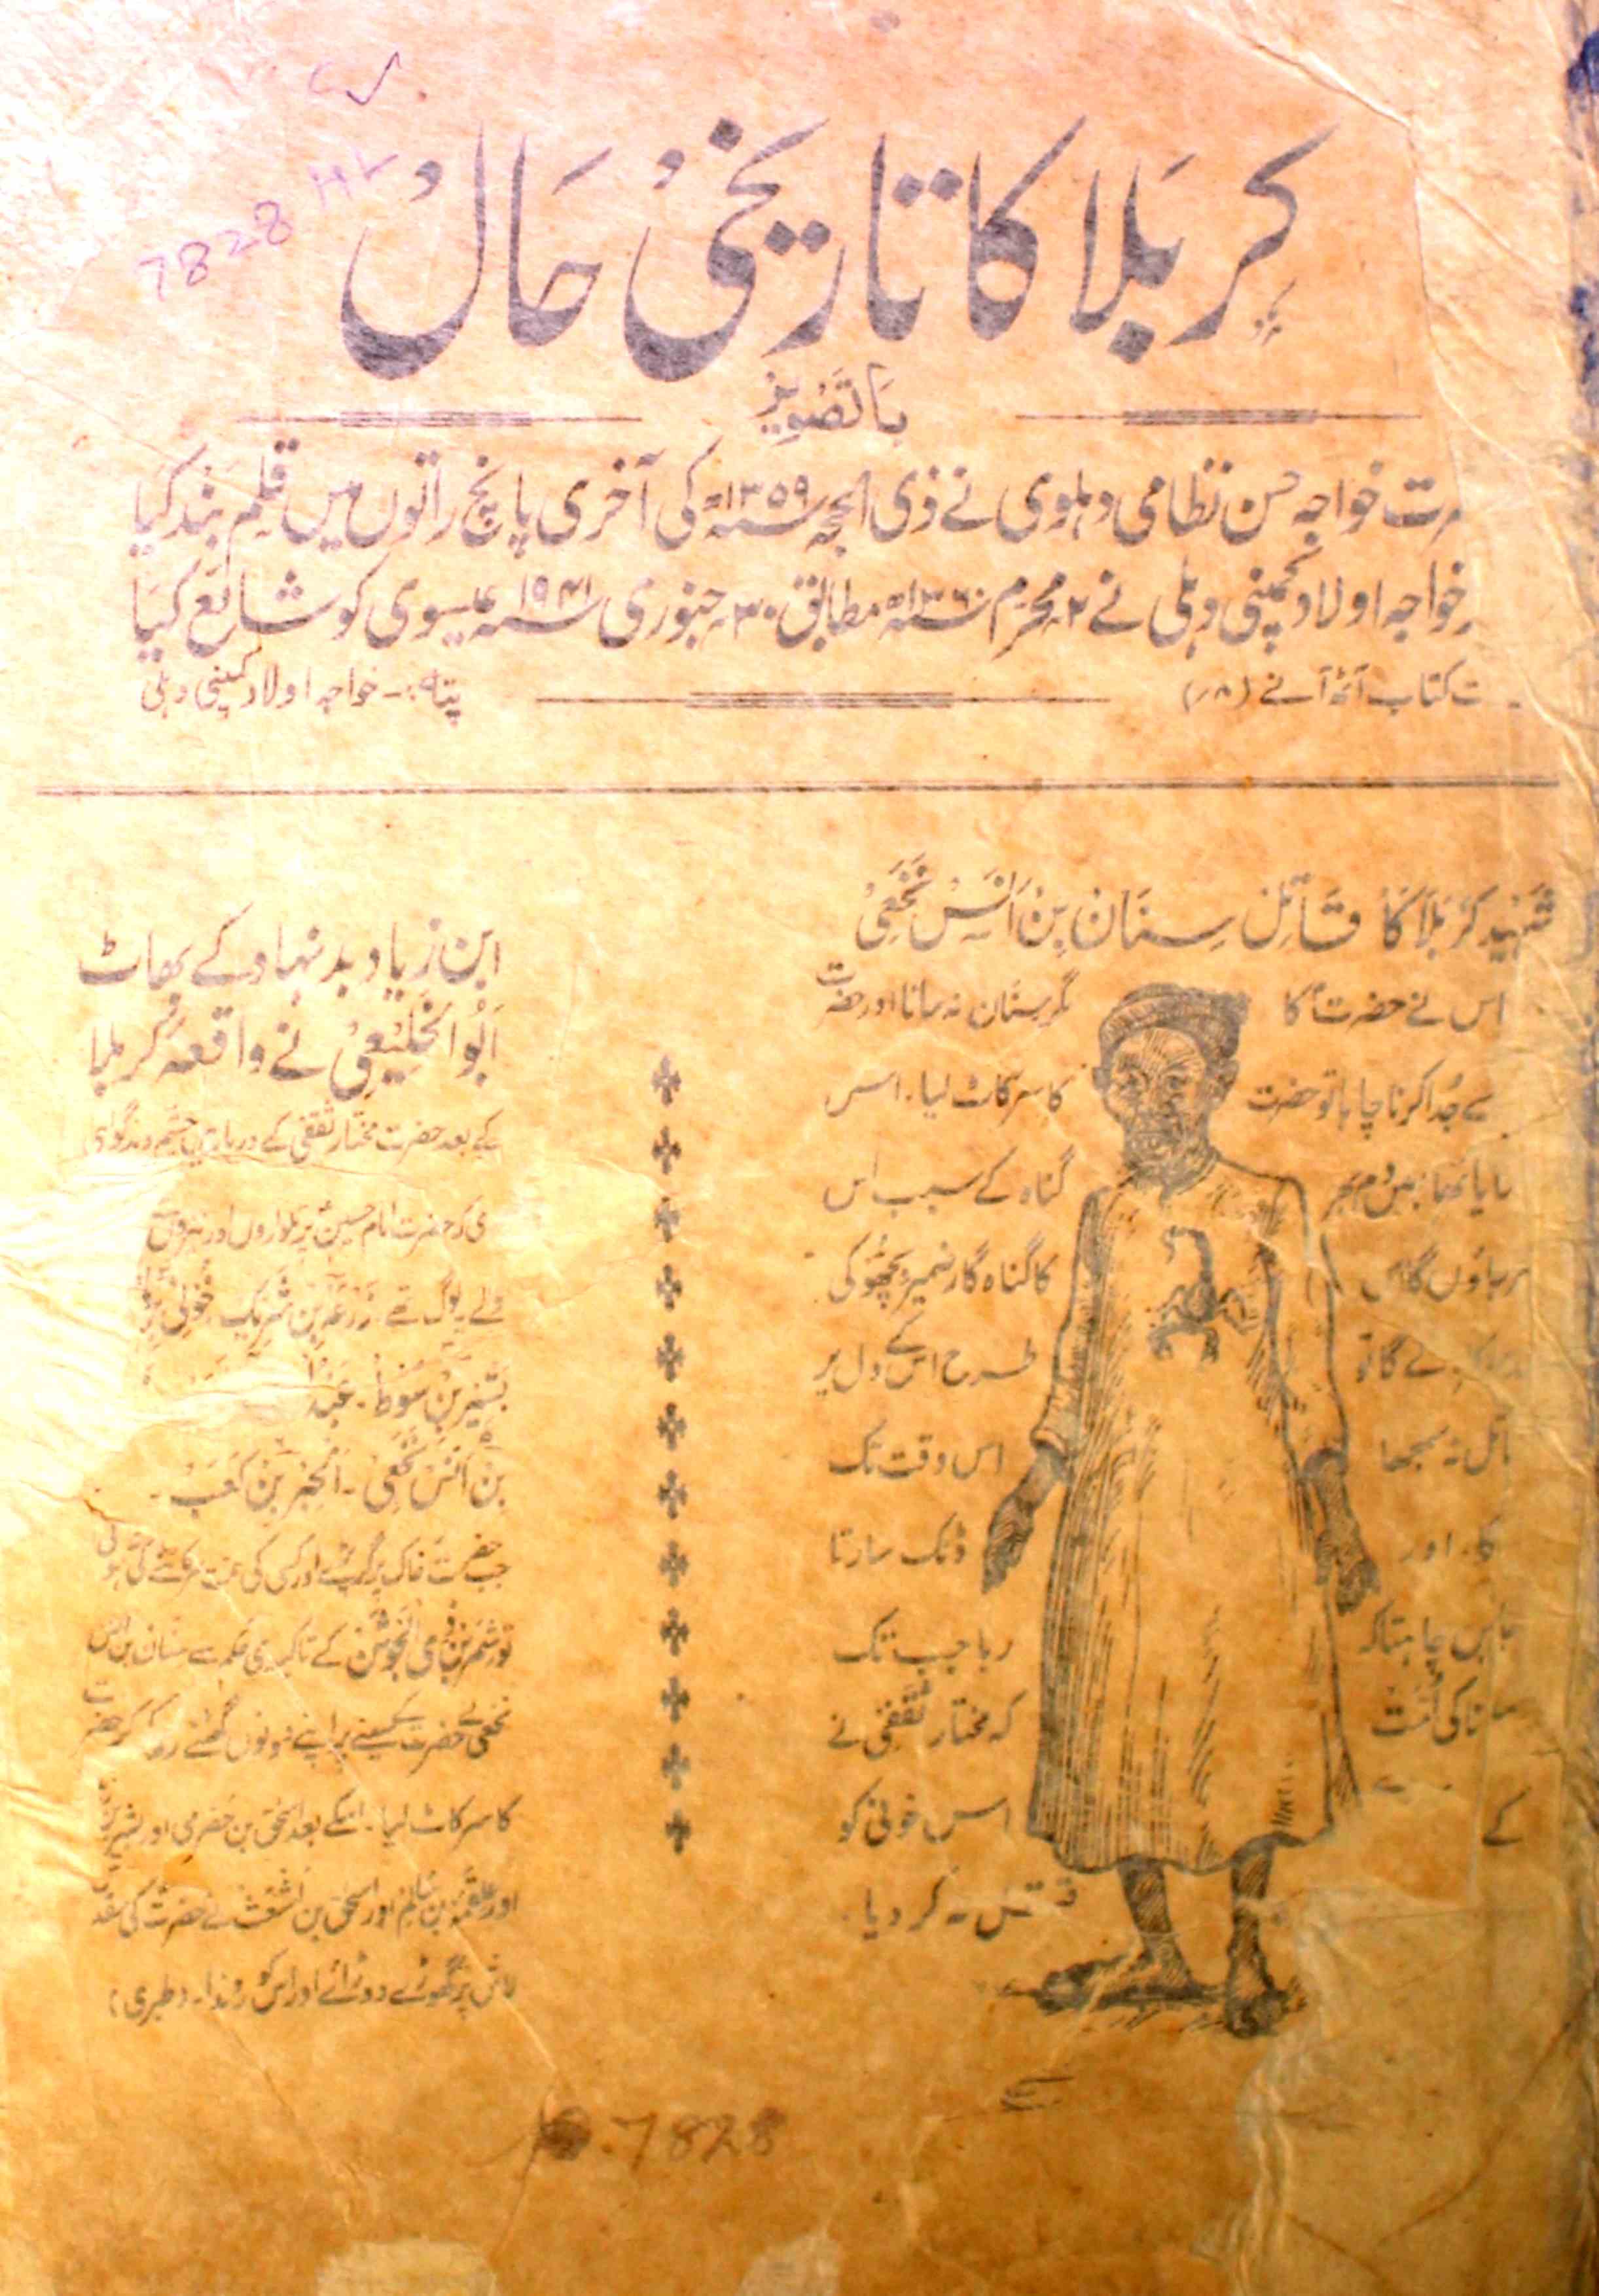 7828
کربلا کا تاریخی حال
باتصویر
خواجہ حسن نظامی دہلوی نے ذی الحجہ سنہ ۱۳۵۹ھ کی آخری پانچ راتوں میں قلم بند کیا
خواجہ اولاد کمپنی دہلی نے ۲ محرم سنہ ۱۳۶۰ھ مطابق ۳۰ جنوری سنہ ۱۹۴۱ عیسوی کو شائع کیا
کتاب آٹھ آنے (۸؍)
پتہ:- خواجہ اولاد کمپنی دہلی
شہید کربلا کا قاتل سنان بن انس نخعی
اس نے حضرت کا
سے جدا کرنا چاہا تو حضرت
گا تو
نہ سمجھا
کا۔ اور
چاہتا کہ
نانا کی امت
کے
مگر سنان نہ مانا اور حضرت
کا سر کاٹ لیا۔ اس
گناہ کے سبب اس
کا گناہ گار ضمیر بچھو کی
طرح اس کے دل پر
اس وقت تک
ڈنک مارتا
رہا جب تک
کہ مختار ثقفی نے
اس خونی کو
قتل نہ کر دیا۔
ابن زیاد بد نہاد کے بھاٹ
ابو الخلیعی نے واقعہ کربلا
کے بعد حضرت مختار ثقفی کے دربار میں چشم دید گواہی
دی کہ حضرت امام حسین پر تلواروں اور نیزوں
والے یہ لوگ تھے۔ زرعہ بن شریک۔ خولی بن
بشیر بن سوط۔
بن انس نخعی۔ ابحر بن کعب۔
جب حضرت خاک پر گر پڑے اور کسی کی ہمت سر کاٹنے کی نہ ہوئی
تو شمر بن ذی الجوشن کے تاکیدی حکم سے سنان بن انس
نخعی نے حضرت کے سینے پر اپنے دونوں گھٹنے رکھ کر حضرت
کا سر کاٹ لیا۔ اسکے بعد اسحٰق بن حضرمی اور بشیر بن
اور علقمہ بن سالم اور اسحٰق بن اشعث نے حضرت کی مقدس
لاش پر گھوڑے دوڑائے اور اس کو روندا۔ (طبری)
7828